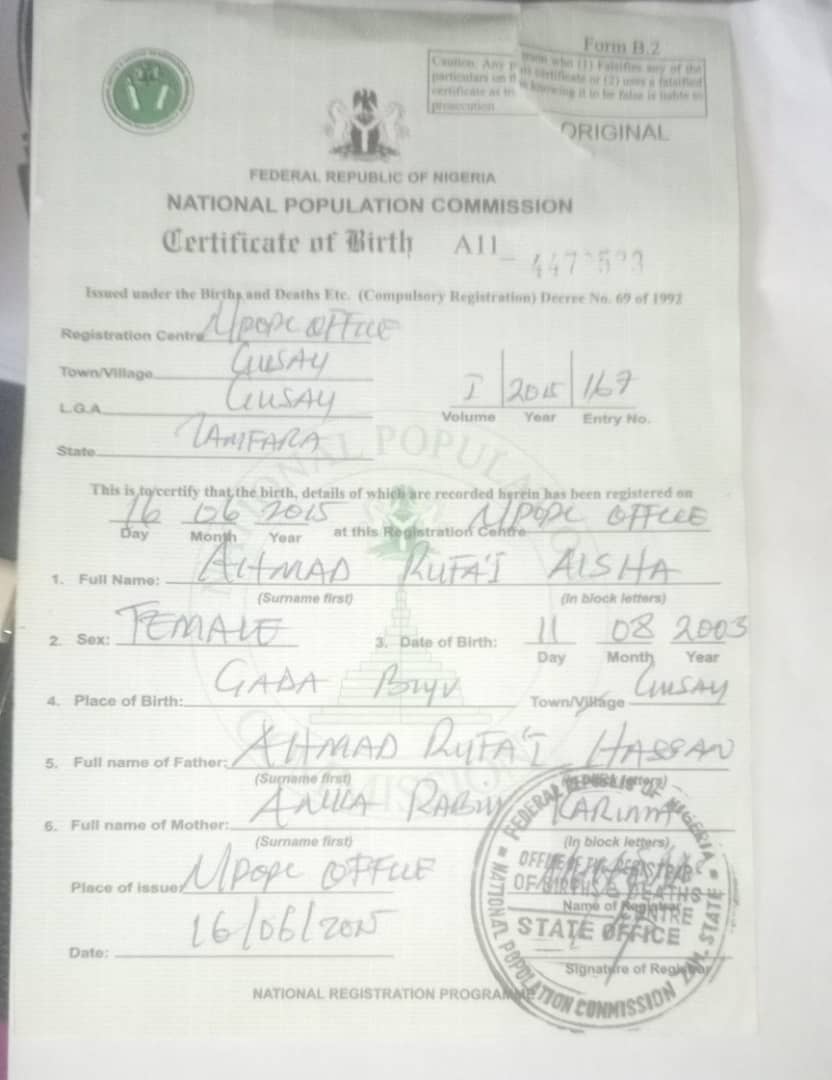 Form B.2
Caution: Any person who (1) Falsifies any of the
particulars on this certificate or (2) uses a falsified
certificate as true knowing it to be false is liable to
prosecution
ORIGINAL
FEDERAL REPUBLIC OF NIGERIA
NATIONAL POPULATION COMMISSION
Certificate of Birth A11
Issued under the Births and Deaths Etc. (Compulsory Registration) Decree No. 69 of 1992
Registration Centre NPOPC OFFICE
Town/Village GUSAU
L.G.A GUSAU
I 2015 167
Volume Year Entry No.
State ZAMFARA
This is to certify that the birth, details of which are recorded herein has been registered on
16 06 2015 at this Registration Centre NPOPC OFFICE
Day Month Year
1. Full Name: AHMAD RUFA'I AISHA
(Surname first) (In block letters)
2. Sex: FEMALE 3. Date of Birth: 11 08 2003
Day Month Year
4. Place of Birth: GADA BIYU Town/Village GUSAU
5. Full name of Father: AHMAD RUFA'I HASSAN
(Surname first) (In block letters)
6. Full name of Mother: RABIU
(Surname first) (In block letters)
Place of issue: NPOPC OFFICE
Name of Registrar
Date: 16/06/2015
Signature of Registrar
NATIONAL REGISTRATION PROGRAMME
FEDERAL REPUBLIC OF NIGERIA
OFFICE OF THE REGISTRAR
OF BIRTHS & DEATHS
CENTRE
STATE OFFICE
NATIONAL POPULATION COMMISSION ZAM. STATE
NATIONAL POPULATION COMMISSION